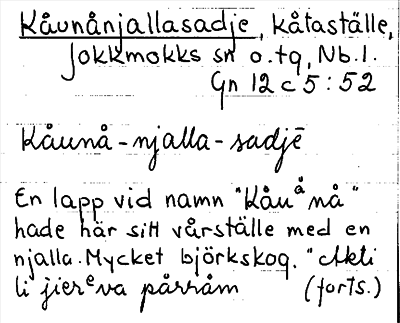 Kåunånjallasadje, kåtaställe,
Jokkmokks sn o. tg, Nb. l.
Gn 12 c 5 : 52
Kåunå-njalla-sadjē
En lapp vid namn "Kåuånå"
hade här sitt vårställe med en
njalla. Mycket björkskog. "Akti
li jiereva pårråm (forts.)